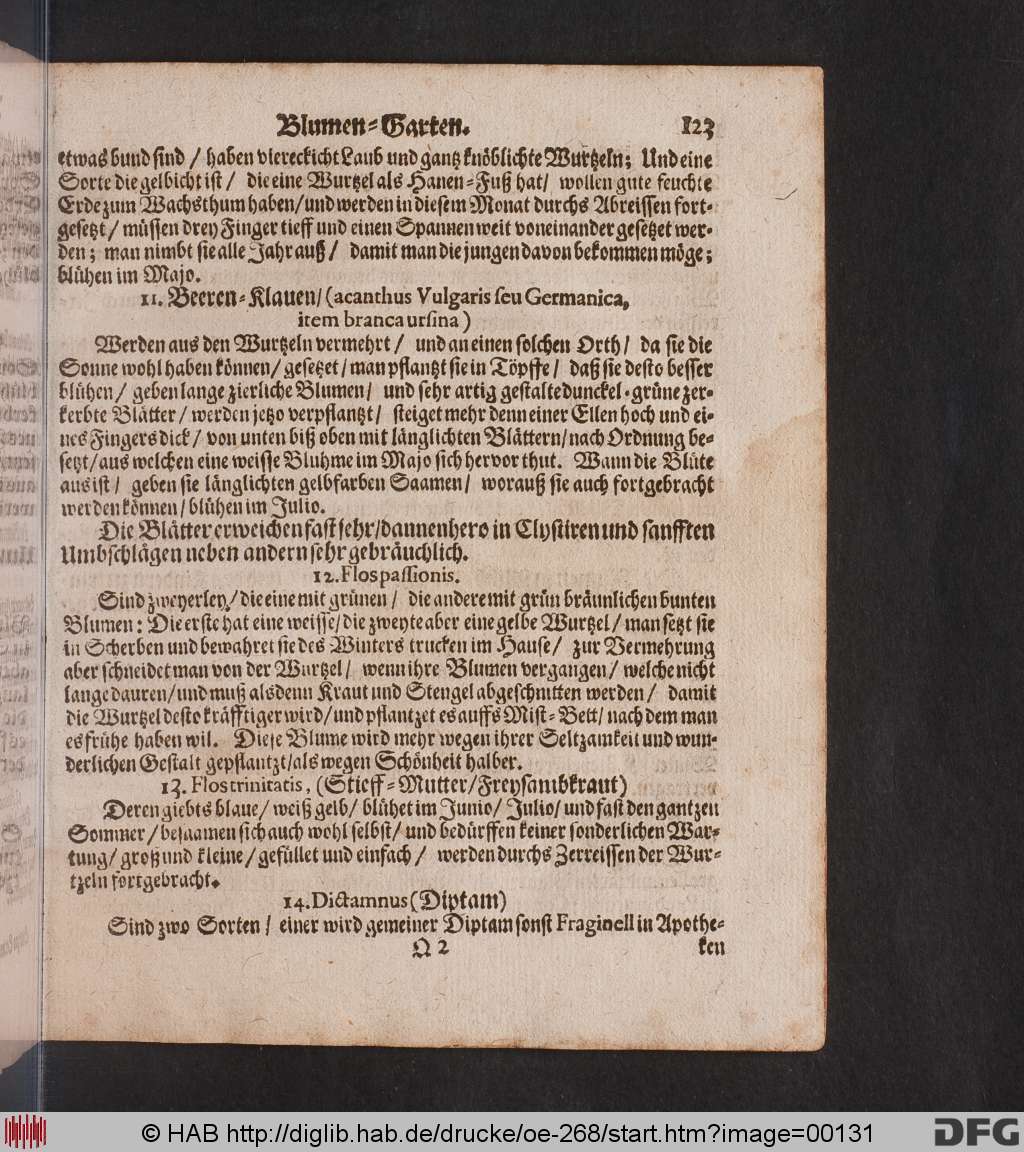 Blumen-Garten. 123
etwas bund sind / haben viereckicht Laub und gantz knöblichte Wurtzeln; Und eine
Sorte die gelbicht ist / die eine Wurtzel als Hanen-Fuß hat / wollen gute feuchte
Erde zum Wachsthum haben / und werden in diesem Monat durchs Abreissen fort-
gesetzt / müssen drey Finger tieff und einen Spannen weit voneinander gesetzet wer-
den; man nimbt sie alle Jahr auß / damit man die jungen davon bekommen möge;
blühen im Majo.
11. Beeren-Klauen / (acanthus Vulgaris seu Germanica,
item branca ursina)
Werden aus den Wurtzeln vermehrt / und an einen solchen Orth / da sie die
Sonne wohl haben können / gesetzet / man pflantzt sie in Töpffe / daß sie desto besser
blühen / geben lange zierliche Blumen / und sehr artig gestalte dunckel-grüne zer-
kerbte Blätter / werden jetzo verpflantzt / steiget mehr denn einer Ellen hoch und ei-
nes Fingers dick / von unten biß oben mit länglichten Blättern / nach Ordnung be-
setzt / aus welchen eine weisse Bluhme im Majo sich hervor thut. Wann die Blüte
aus ist / geben sie länglichten gelbfarben Saamen / worauß sie auch fortgebracht
werden können / blühen im Julio.
Die Blätter erweichen fast sehr / dannenhero in Clystiren und sanfften
Umbschlägen neben andern sehr gebräuchlich.
12. Flos passionis.
Sind zweyerley / die eine mit grünen / die andere mit grün bräunlichen bunten
Blumen: Die erste hat eine weisse / die zweyte aber eine gelbe Wurtzel / man setzt sie
in Scherben und bewahret sie des Winters trucken im Hause / zur Vermehrung
aber schneidet man von der Wurtzel / wenn ihre Blumen vergangen / welche nicht
lange dauren / und muß alsdenn Kraut und Stengel abgeschnitten werden / damit
die Wurtzel desto kräfftiger wird / und pflantzet es auffs Mist-Bett / nach dem man
es frühe haben wil. Diese Blume wird mehr wegen ihrer Seltzamkeit und wun-
derlichen Gestalt gepflantzt / als wegen Schönheit halber.
13. Flos trinitatis, (Stieff-Mutter / Freysambkraut)
Deren giebts blaue / weiß gelb / blühet im Junio / Julio / und fast den gantzen
Sommer / besaamen sich auch wohl selbst / und bedürffen keiner sonderlichen War-
tung / groß und kleine / gefüllet und einfach / werden durchs Zerreissen der Wur-
tzeln fortgebracht.
14. Dictamnus (Diptam)
Sind zwo Sorten / einer wird gemeiner Diptam sonst Fraginell in Apothe-
Q 2 ken
© HAB http://diglib.hab.de/drucke/oe-268/start.htm?image=00131
DFG